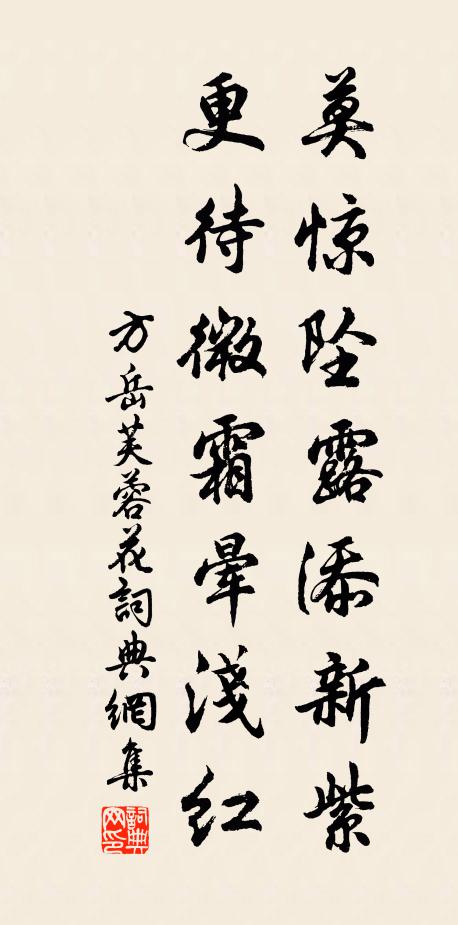 莫惊坠露添新紫
更待微霜晕浅红
方岳芙蓉花詞典網集
詞典網印